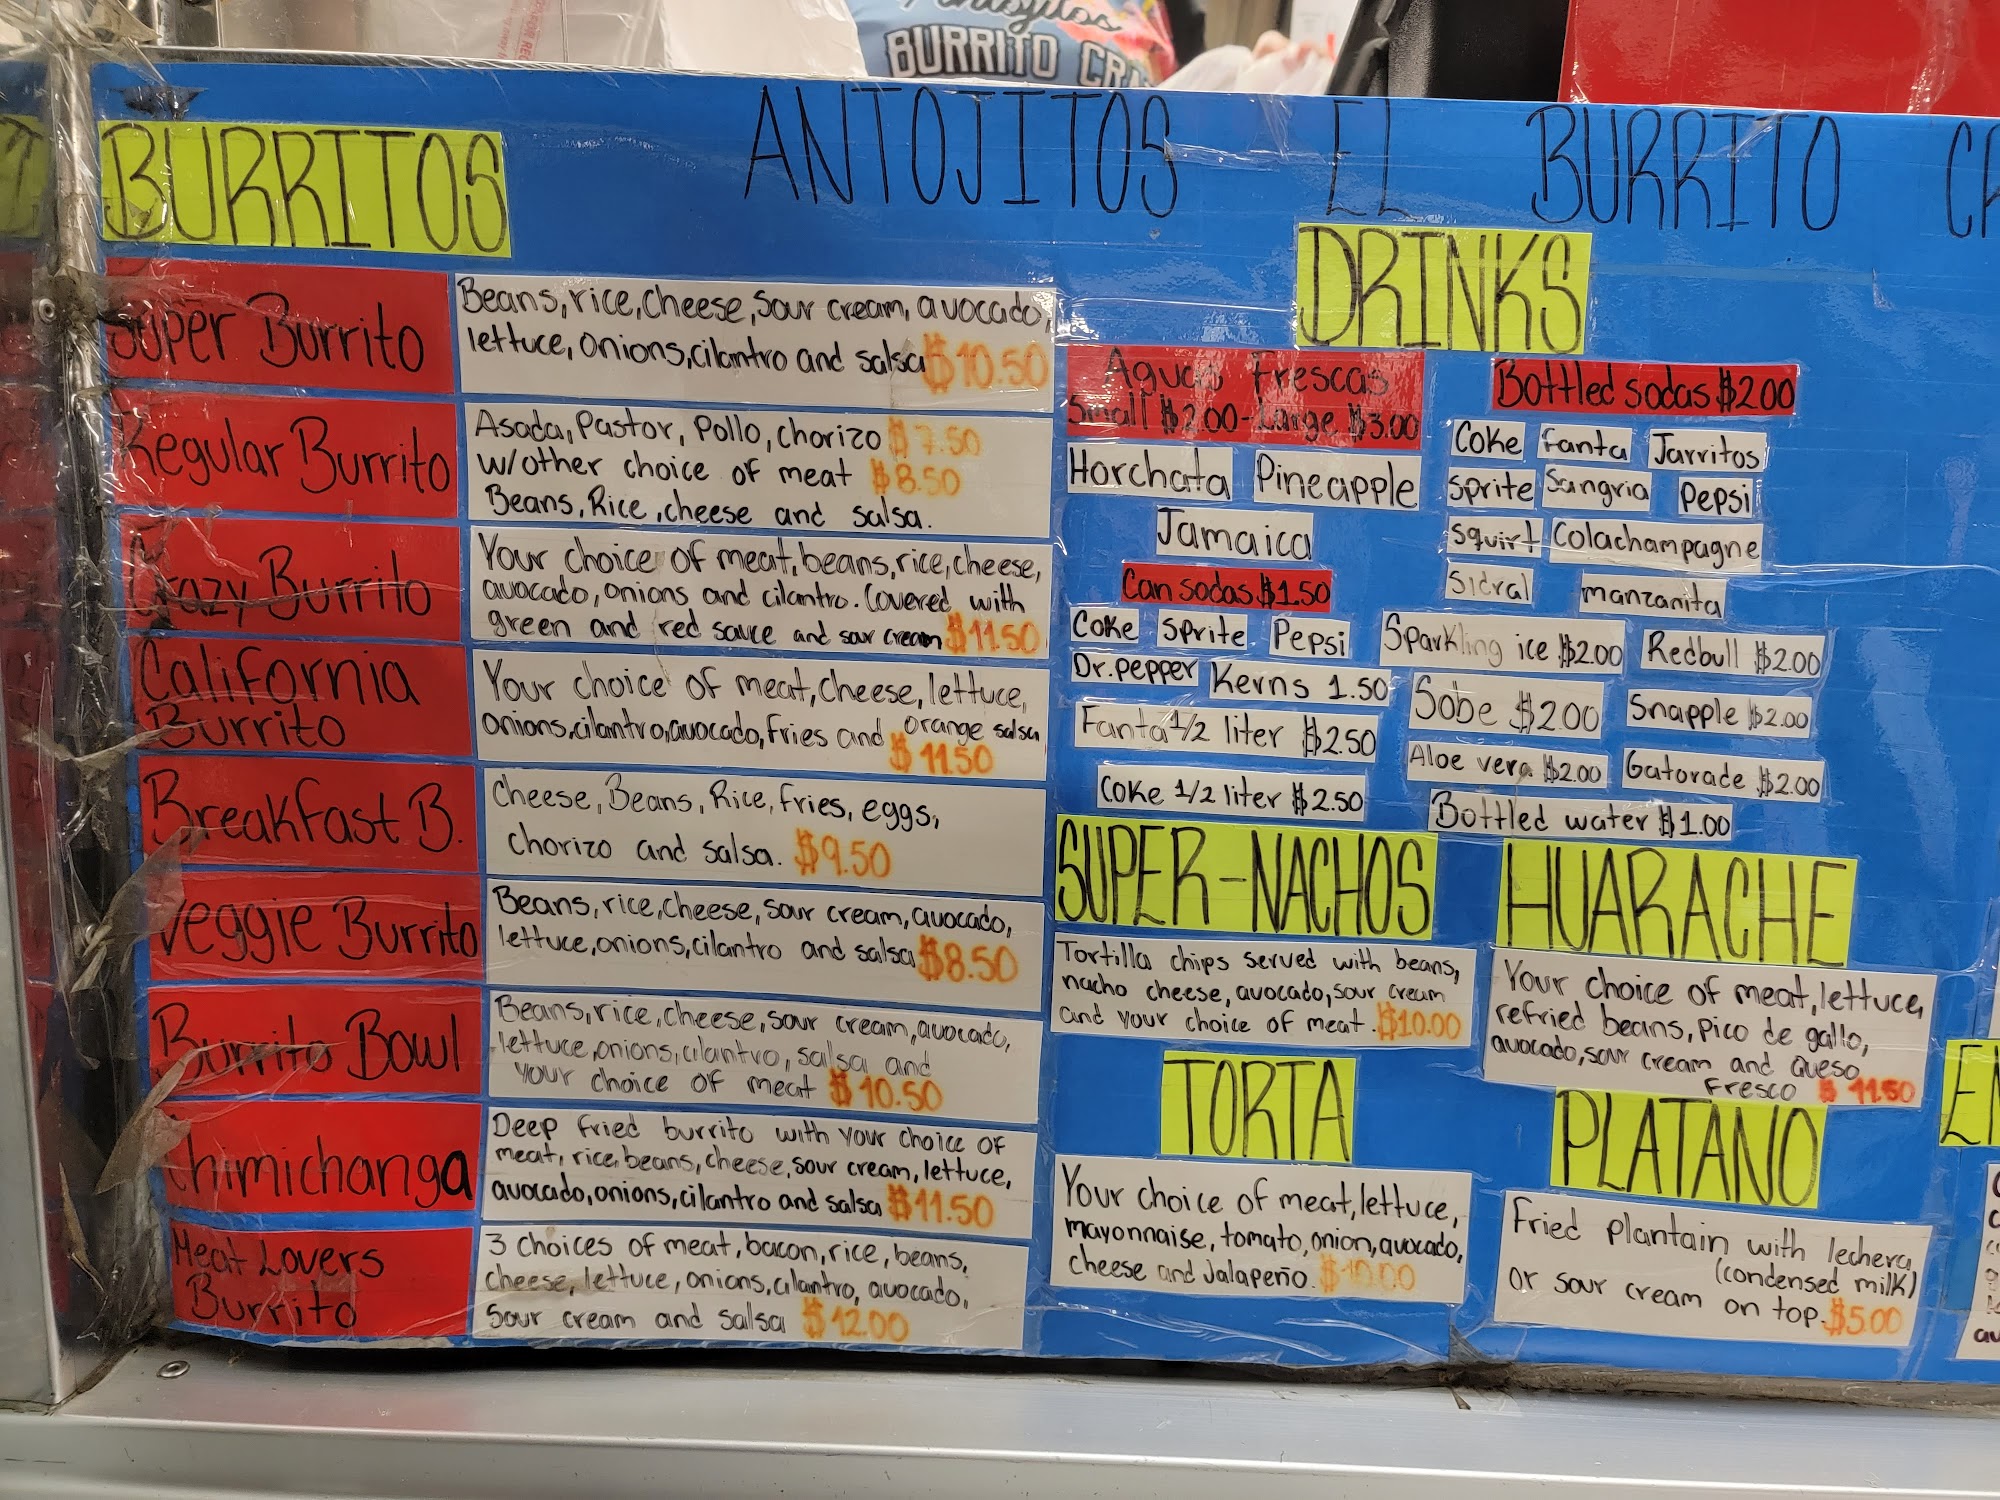 Antojitos
BURRITO CR
ANTOJITOS EL BURRITO
BURRITOS
Super Burrito
Beans, rice, cheese, sour cream, avocado,
lettuce, onions, cilantro and salsa $10.50
Regular Burrito
Asada, Pastor, Pollo, chorizo $7.50
w/other choice of meat $8.50
Beans, Rice, cheese and salsa.
Crazy Burrito
Your choice of meat, beans, rice, cheese,
avocado, onions and cilantro. Covered with
green and red sauce and sour cream $11.50
California
Burrito
Your choice of meat, cheese, lettuce,
onions, cilantro, avocado, fries and orange salsa
$11.50
Breakfast B.
Cheese, Beans, Rice, fries, eggs,
chorizo and salsa. $9.50
Veggie Burrito
Beans, rice, cheese, sour cream, avocado,
lettuce, onions, cilantro and salsa $8.50
Burrito Bowl
Beans, rice, cheese, sour cream, avocado,
lettuce, onions, cilantro, salsa and
your choice of meat $10.50
Chimichanga
Deep fried burrito with your choice of
meat, rice, beans, cheese, sour cream, lettuce,
avocado, onions, cilantro and salsa $11.50
Meat Lovers
Burrito
3 choices of meat, bacon, rice, beans,
cheese, lettuce, onions, cilantro, avocado,
sour cream and salsa $12.00
DRINKS
Aguas Frescas
Small $2.00 - Large $3.00
Horchata Pineapple
Jamaica
Can sodas $1.50
Coke Sprite Pepsi
Dr. pepper Kerns 1.50
Fanta 1/2 liter $2.50
Coke 1/2 liter $2.50
Bottled sodas $2.00
Coke Fanta Jarritos
Sprite Sangria Pepsi
Squirt Colachampagne
Sidral manzanita
Sparkling ice $2.00 Redbull $2.00
Sobe $2.00 Snapple $2.00
Aloe vera $2.00 Gatorade $2.00
Bottled water $1.00
SUPER-NACHOS
Tortilla chips served with beans,
nacho cheese, avocado, sour cream
and your choice of meat. $10.00
HUARACHE
Your choice of meat, lettuce,
refried beans, pico de gallo,
avocado, sour cream and Queso
Fresco $11.50
TORTA
Your choice of meat, lettuce,
mayonnaise, tomato, onion, avocado,
cheese and Jalapeño. $10.00
PLATANO
Fried plantain with lechera
(condensed milk)
or sour cream on top. $5.00